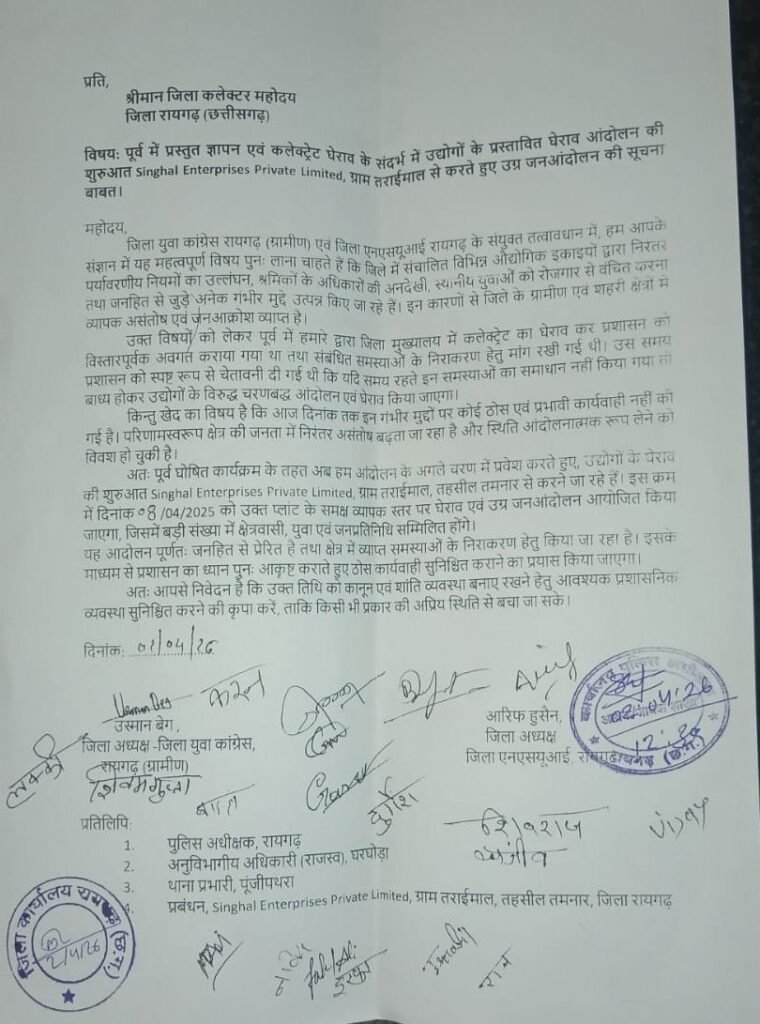 प्रति,
श्रीमान जिला कलेक्टर महोदय
जिला रायगढ़ (छत्तीसगढ़)
विषय: पूर्व में प्रस्तुत ज्ञापन एवं कलेक्ट्रेट घेराव के संदर्भ में उद्योगों के प्रस्तावित घेराव आंदोलन की
शुरुआत Singhal Enterprises Private Limited, ग्राम तराईमाल से करते हुए उग्र जनआंदोलन की सूचना
बाबत।
महोदय,
जिला युवा कांग्रेस रायगढ़ (ग्रामीण) एवं जिला एनएसयूआई रायगढ़ के संयुक्त तत्वावधान में, हम आपके
संज्ञान में यह महत्वपूर्ण विषय पुनः लाना चाहते हैं कि जिले में संचालित विभिन्न औद्योगिक इकाइयों द्वारा निरंतर
पर्यावरणीय नियमों का उल्लंघन, श्रमिकों के अधिकारों की अनदेखी, स्थानीय युवाओं को रोजगार से वंचित करना
तथा जनहित से जुड़े अनेक गंभीर मुद्दे उत्पन्न किए जा रहे हैं। इन कारणों से जिले के ग्रामीण एवं शहरी क्षेत्रों में
व्यापक असंतोष एवं जनआक्रोश व्याप्त है।
उक्त विषयों को लेकर पूर्व में हमारे द्वारा जिला मुख्यालय में कलेक्ट्रेट का घेराव कर प्रशासन को
विस्तारपूर्वक अवगत कराया गया था तथा संबंधित समस्याओं के निराकरण हेतु मांग रखी गई थी। उस समय
प्रशासन को स्पष्ट रूप से चेतावनी दी गई थी कि यदि समय रहते इन समस्याओं का समाधान नहीं किया गया तो
बाध्य होकर उद्योगों के विरुद्ध चरणबद्ध आंदोलन एवं घेराव किया जाएगा।
किन्तु खेद का विषय है कि आज दिनांक तक इन गंभीर मुद्दों पर कोई ठोस एवं प्रभावी कार्यवाही नहीं की
गई है। परिणामस्वरूप क्षेत्र की जनता में निरंतर असंतोष बढ़ता जा रहा है और स्थिति आंदोलनात्मक रूप लेने को
विवश हो चुकी है।
अतः पूर्व घोषित कार्यक्रम के तहत अब हम आंदोलन के अगले चरण में प्रवेश करते हुए, उद्योगों के घेराव
की शुरुआत Singhal Enterprises Private Limited, ग्राम तराईमाल, तहसील तमनार से करने जा रहे हैं। इस क्रम
में दिनांक 08/04/2025 को उक्त प्लांट के समक्ष व्यापक स्तर पर घेराव एवं उग्र जनआंदोलन आयोजित किया
जाएगा, जिसमें बड़ी संख्या में क्षेत्रवासी, युवा एवं जनप्रतिनिधि सम्मिलित होंगे।
यह आंदोलन पूर्णतः जनहित से प्रेरित है तथा क्षेत्र में व्याप्त समस्याओं के निराकरण हेतु किया जा रहा है। इसके
माध्यम से प्रशासन का ध्यान पुनः आकृष्ट कराते हुए ठोस कार्यवाही सुनिश्चित कराने का प्रयास किया जाएगा।
अतः आपसे निवेदन है कि उक्त तिथि को कानून एवं शांति व्यवस्था बनाए रखने हेतु आवश्यक प्रशासनिक
व्यवस्था सुनिश्चित करने की कृपा करें, ताकि किसी भी प्रकार की अप्रिय स्थिति से बचा जा सके।
दिनांक: 02/04/26
करन
उस्मान बेग,
जिला अध्यक्ष -जिला युवा कांग्रेस,
रायगढ़ (ग्रामीण)
आरिफ हुसैन,
जिला अध्यक्ष
जिला एनएसयूआई, रायगढ़
02.04.26
12:26
लक्की
शिवम गुप्ता
दुर्गेश
शिवराज
संजीव
vijay
प्रतिलिपि:
1. पुलिस अधीक्षक, रायगढ़
2. अनुविभागीय अधिकारी (राजस्व), घरघोड़ा
3. थाना प्रभारी, पूंजीपथरा
4. प्रबंधन, Singhal Enterprises Private Limited, ग्राम तराईमाल, तहसील तमनार, जिला रायगढ़
जिला कार्यालय रायगढ़ (छ.ग.)
2/4/26
राम